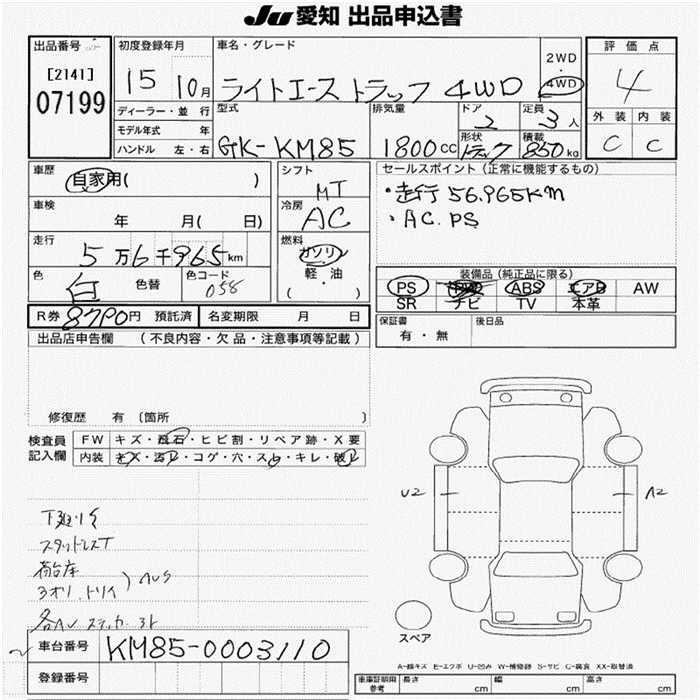 JU 愛知 出品申込書
出品番号
[2141]
07199
初度登録年月
15 10月
ディーラー・並 行
モデル年式 年
ハンドル 左・右
車名・グレード
ライトエース トラック 4WD
2WD
・
4WD
型式
GK-KM85
排気量
1800cc
ドア
2
定員
3人
形状
トラック
積載
850kg
評価点
4
外装 内装
C C
車歴
自家用( )
車検
年 月( 日)
走行
5万6千965km
色
白
色替
色コード
058
シフト
MT
冷房
AC
燃料
ガソリン
軽・油
( ・ )
セールスポイント(正常に機能するもの)
・走行 56.965km
・AC. PS
装備品(純正品に限る)
PS ABS エアB AW
SR ナビ TV 本革
R券 8790円 預託済 名変期限 月 日
保証書
有・無
後日品
出品店申告欄 (不良内容・欠品・注意事項等記載)
修復歴 有〔箇所 〕
検査員
記入欄
FW キズ・飛石・ヒビ割・リペア跡・X要
内装 キズ・汚レ・コゲ・穴・スレ・キレ・破レ
スタッドレスT
荷台
U2
A2
スペア
車台番号 KM85-0003110
登録番号
A-線キズ E-エクボ U-凹み W-補修跡 S-サビ C-腐食 XX-取替済
車庫証明用
参考
長さ cm 幅 cm 高さ cm